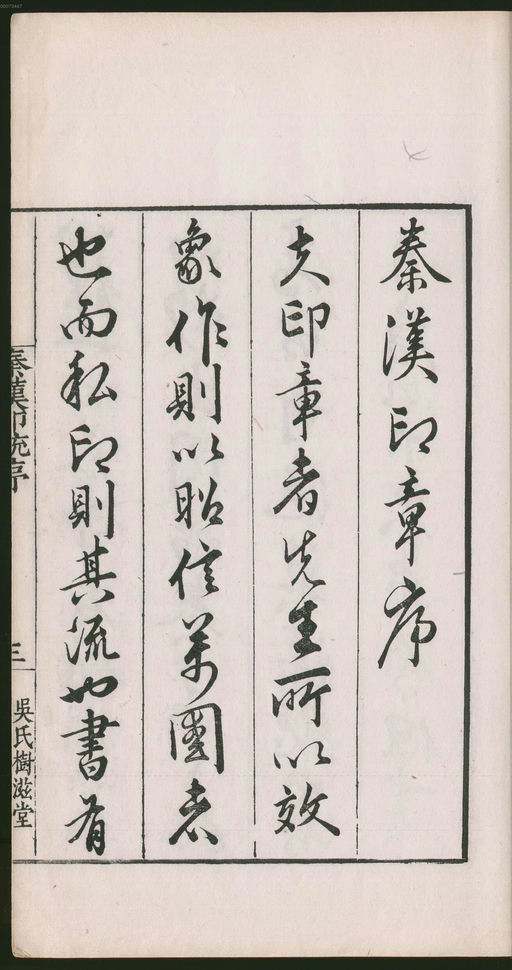 秦漢印章序
夫印章者先生所以效
象作則以昭信萬國者
也而私印則其流也書有
秦漢印統序
三
吳氏樹滋堂